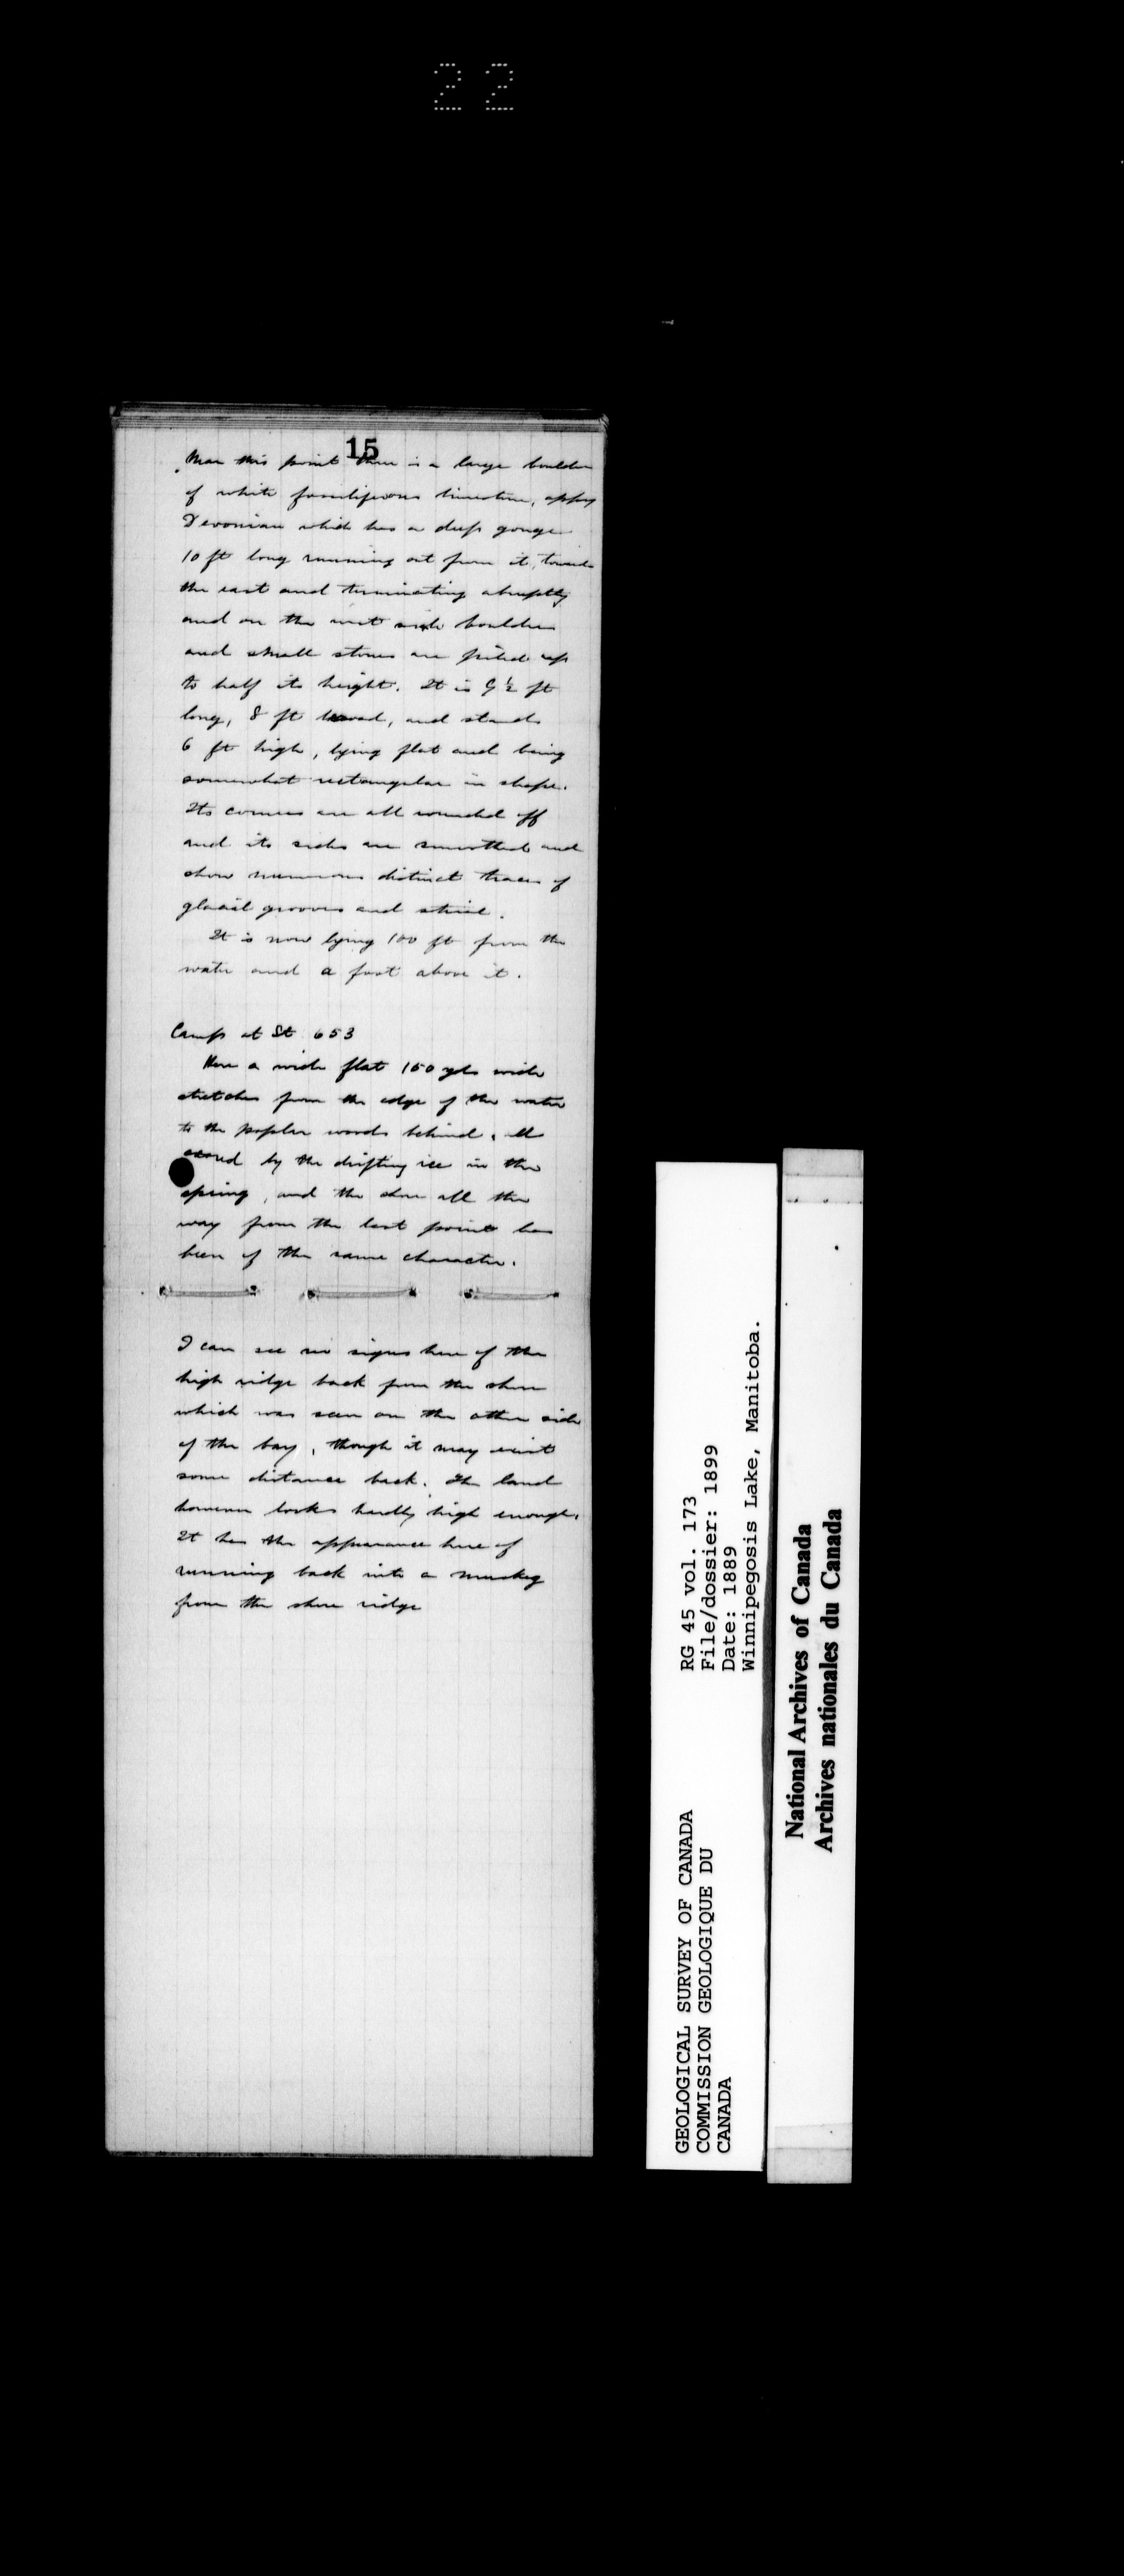 22
15
Near this point there is a large boulder
of white fossiliferous limestone, appy
Devonian which has a deep gouge
10 ft long running out from it, towards
the east and terminating abruptly
and on the west side boulders
and small stones are piled up
to half its height. It is 9½ ft
long, 8 ft broad, and stands
6 ft high, lying flat and being
somewhat rectangular in shape.
Its corners are all rounded off
and its sides are smoothed and
show numerous distinct traces of
glacial grooves and striae.
It is now lying 100 ft from the
water and a foot above it.
Camp at St 653
Here a wide flat 150 yds wide
stretches from the edge of the water
to the poplar woods behind, all
scored by the drifting ice in the
spring, and the shore all the
way from the last point has
been of the same character.
I can see no signs here of the
high ridge back from the shore
which was seen on the other side
of the bay, though it may exist
some distance back. The land
however looks hardly high enough.
It has the appearance here of
running back into a muskeg
from the shore ridge
GEOLOGICAL SURVEY OF CANADA
COMMISSION GEOLOGIQUE DU
CANADA
RG 45 vol. 173
File/dossier: 1899
Date: 1889
Winnipegosis Lake, Manitoba.
National Archives of Canada
Archives nationales du Canada